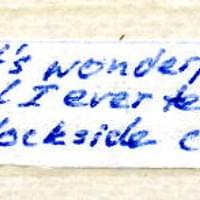 's wonder
I ever te
ockside c